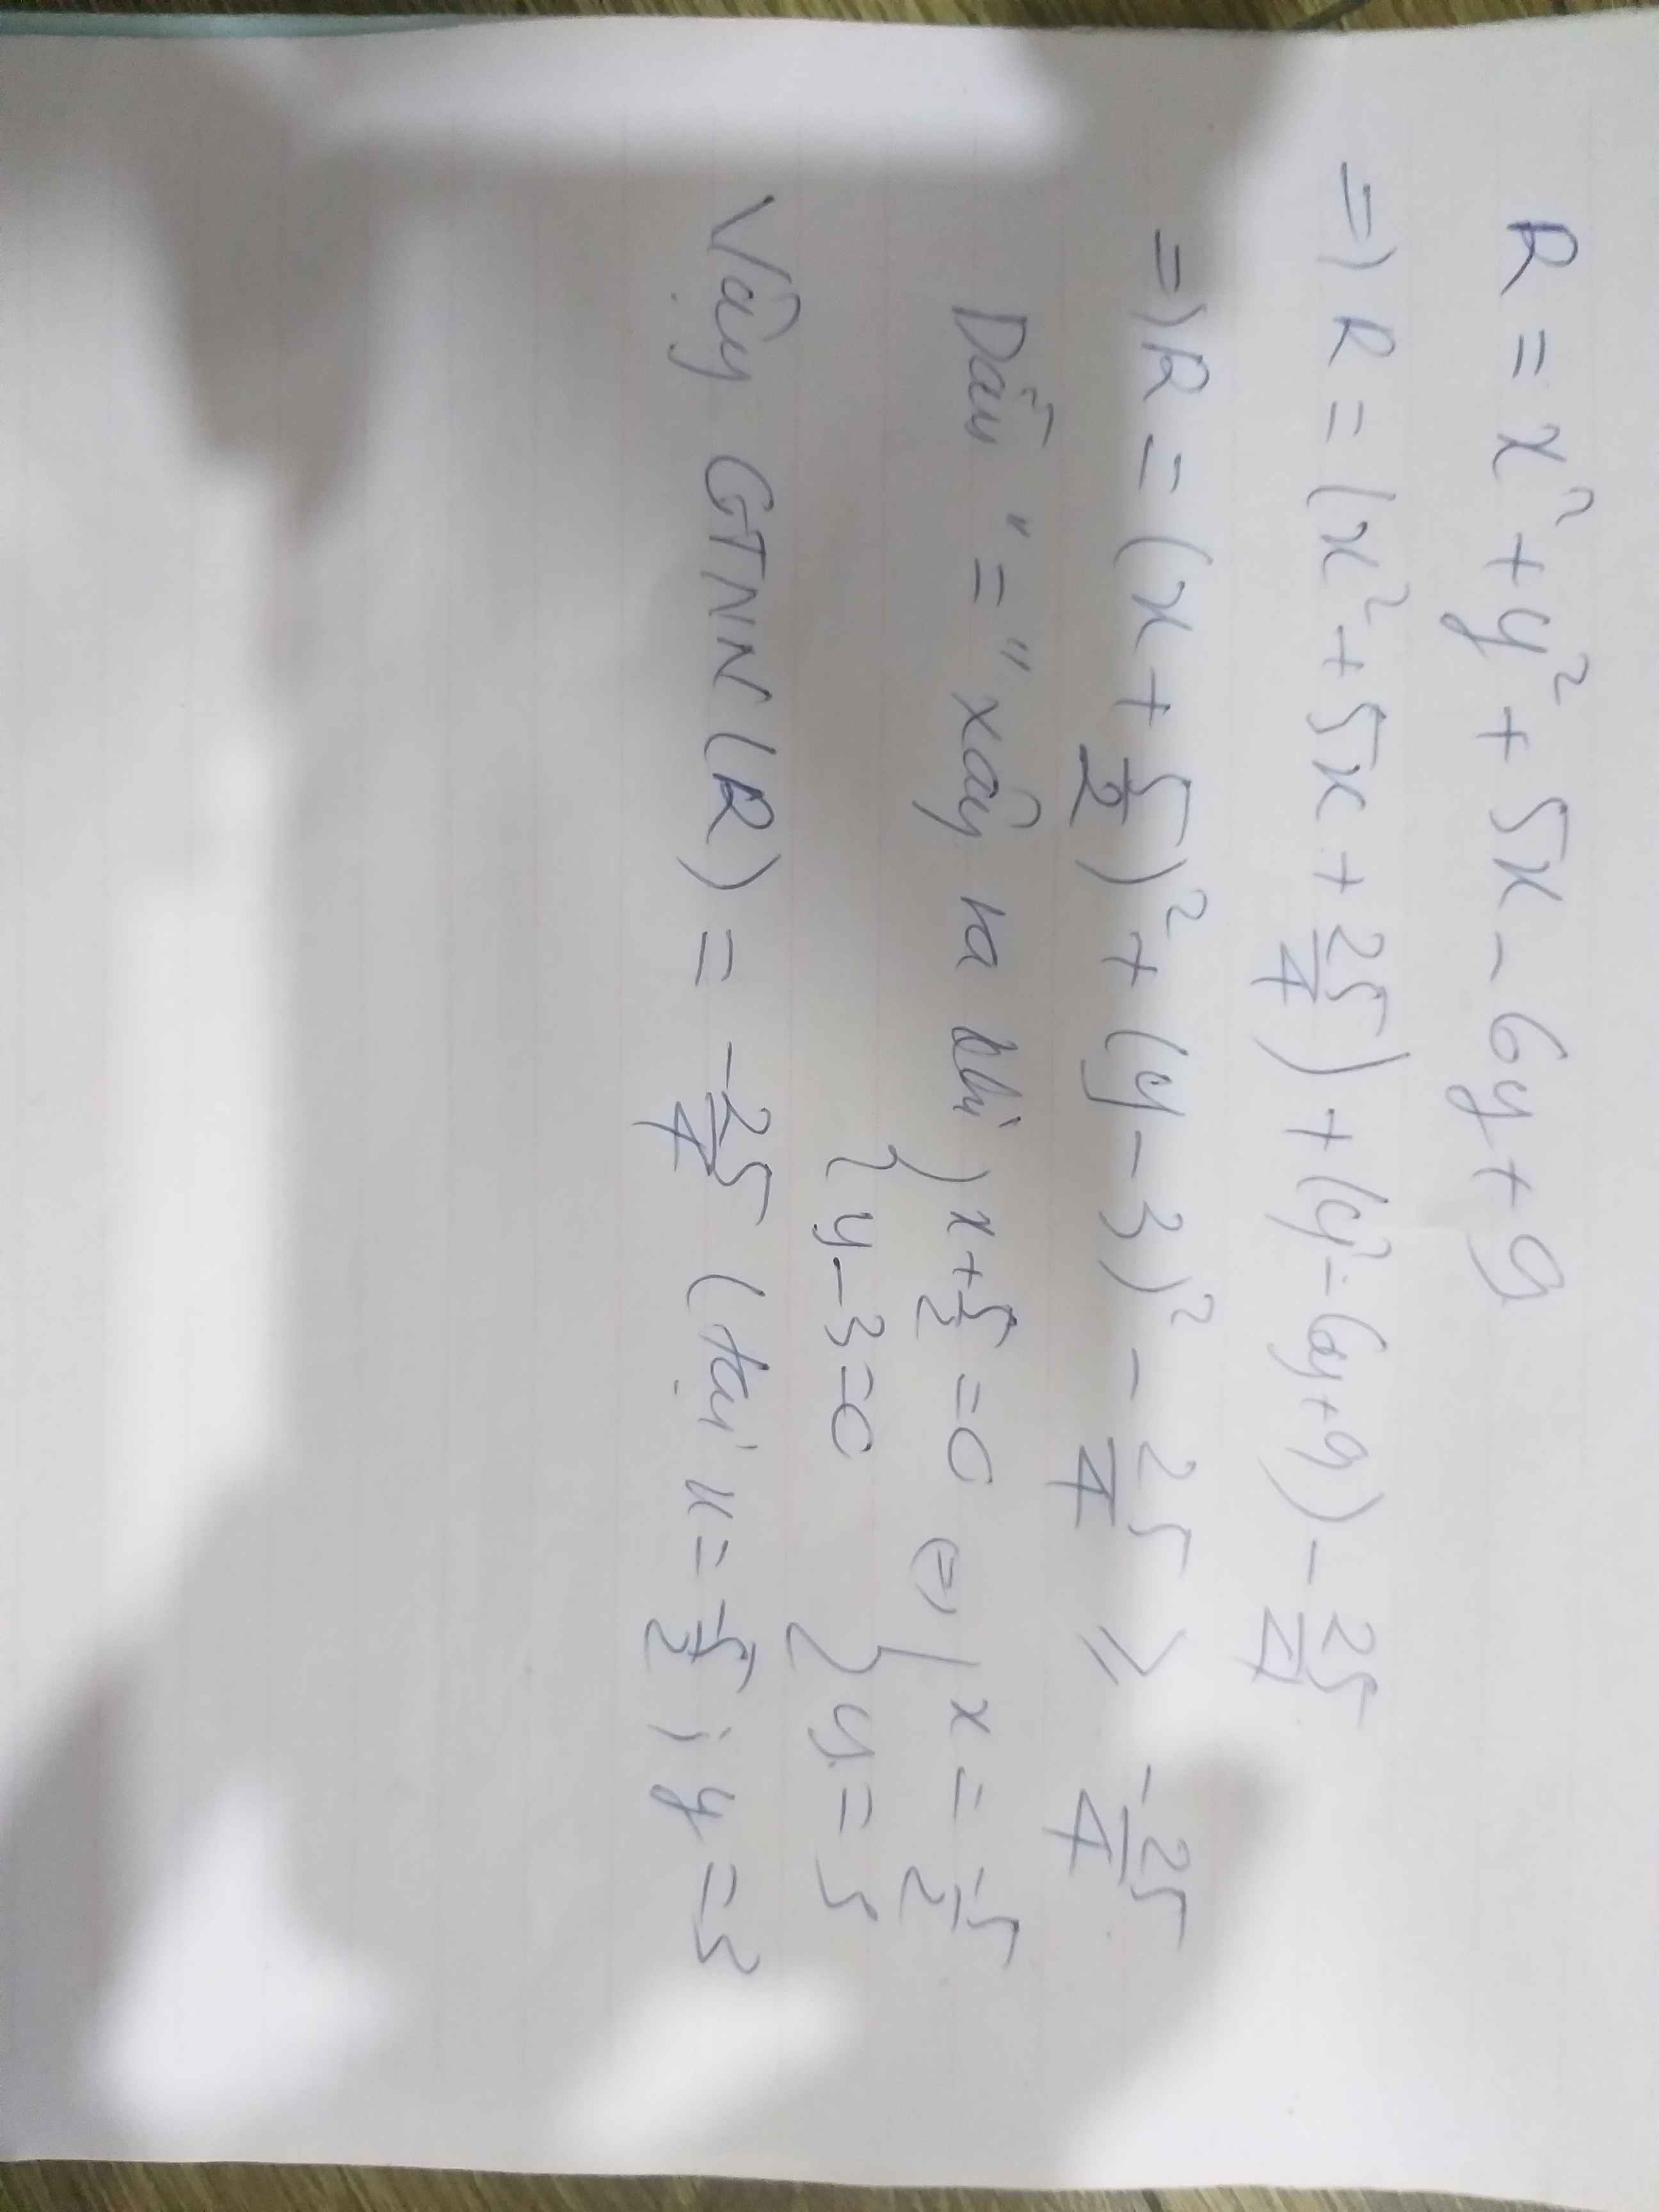 R = x² + y² + 5x - 6y + 9
=> R = (x² + 5x + 25/4) + (y² - 6y + 9) - 25/4
=> R = (x + 5/2)² + (y - 3)² - 25/4 ≥ -25/4
Dấu "=" xảy ra khi { x + 5/2 = 0 <=> { x = -5/2
{ y - 3 = 0 { y = 3
Vậy GTNN (R) = -25/4 (tại x = -5/2 ; y = 3